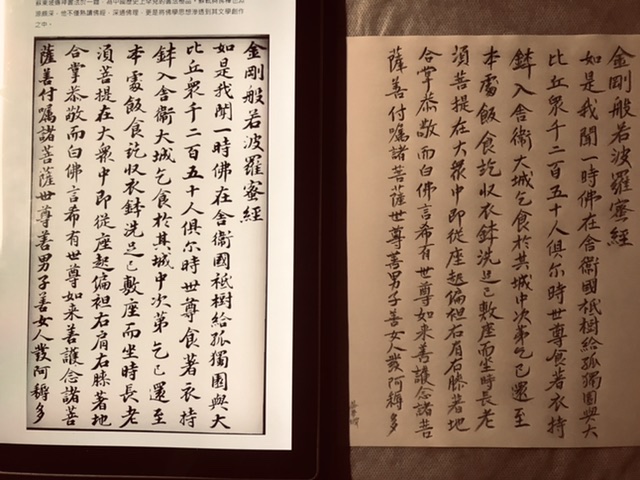 淵頗深，他不僅熟讀佛經，深通佛理，更是將佛學思想滲透到其文學創作
之中。
金剛般若波羅蜜經
如是我聞一時佛在舍衛國祇樹給孤獨園與大
比丘衆千二百五十人俱尔時世尊食著衣持
鉢入舍衛大城乞食於其城中次第乞已還至
本處飯食訖収衣鉢洗足已敷座而坐時長老
須菩提在大衆中即從座起偏袒右肩右膝著地
合掌恭敬而白佛言希有世尊如来善護念諸菩
薩善付囑諸菩薩世尊善男子善女人發阿耨多
金剛般若波羅蜜經
如是我聞一時佛在舍衛國祇樹給孤獨園與大
比丘衆千二百五十人俱尔時世尊食著衣持
鉢入舍衛大城乞食於其城中次第乞已還至
本處飯食訖収衣鉢洗足已敷座而坐時長老
須菩提在大衆中即從座起偏袒右肩右膝著地
合掌恭敬而白佛言希有世尊如来善護念諸菩
薩善付囑諸菩薩世尊善男子善女人發阿耨多